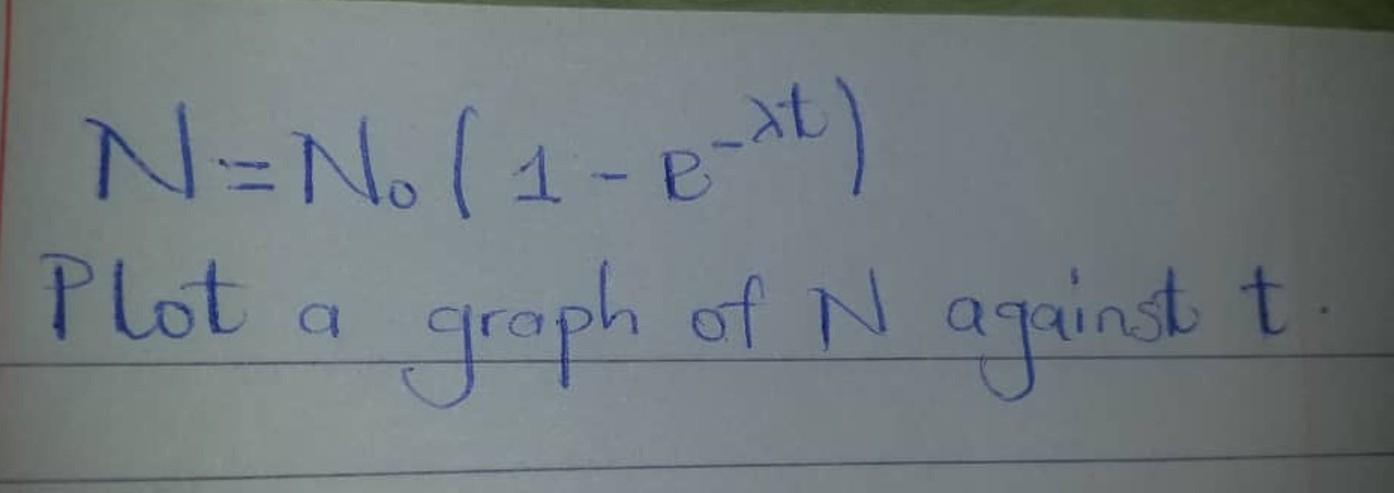 N = N₀ ( 1 - e^-λt )
Plot a graph of N against t.